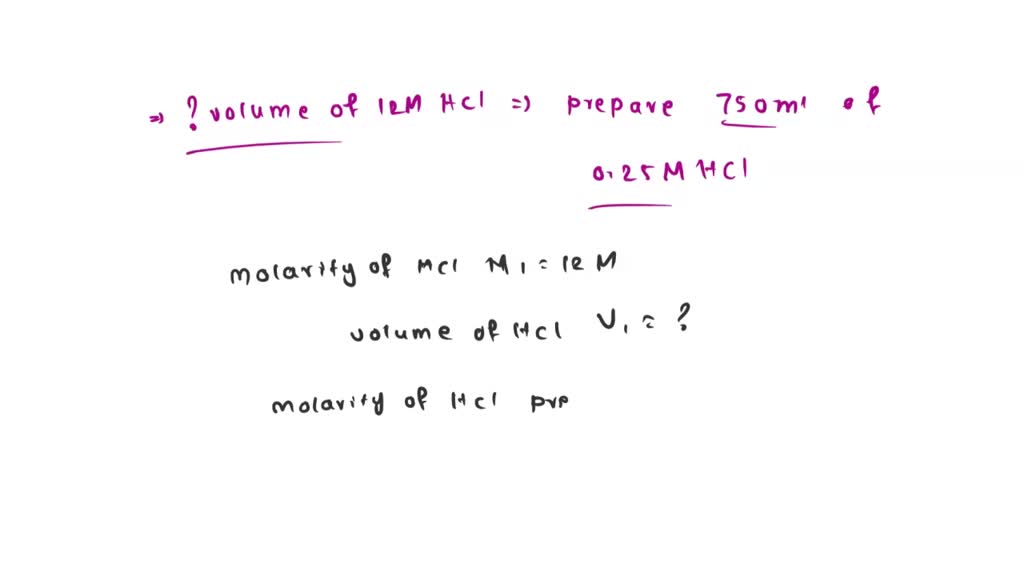 ⇒ ? volume of 12M HCl ⇒ prepare 750ml of
0.25M HCl
molarity of HCl M1 = 12 M
volume of HCl V1 = ?
molarity of HCl pre